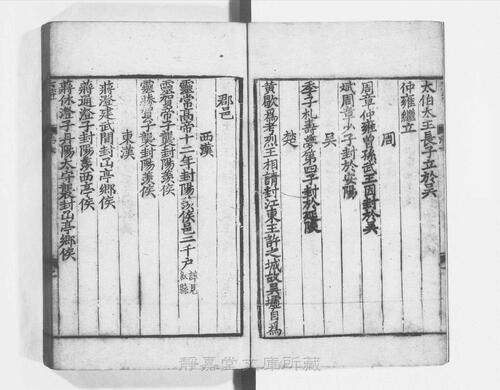 太伯太王長子立於吳
仲雍繼立
周
周章仲雍曾孫武王因封於吳
斌周章少子封於安陽
吳
季子札壽夢第四子封於延陵
楚
黃歇爲考烈王相請封江東王許之城故吳墟自爲
郡邑
西漢
靈常高帝十二年封陽羨侯邑二千戶
靈賀常子襲封陽羨侯
靈勝賀子襲封陽羨侯
東漢
蔣澄建武間封𡶶亭鄉侯
蔣通澄子封陽羨西亭侯
蔣休澄子丹陽太守襲封𡶶亭鄉侯
靜嘉堂文庫所藏